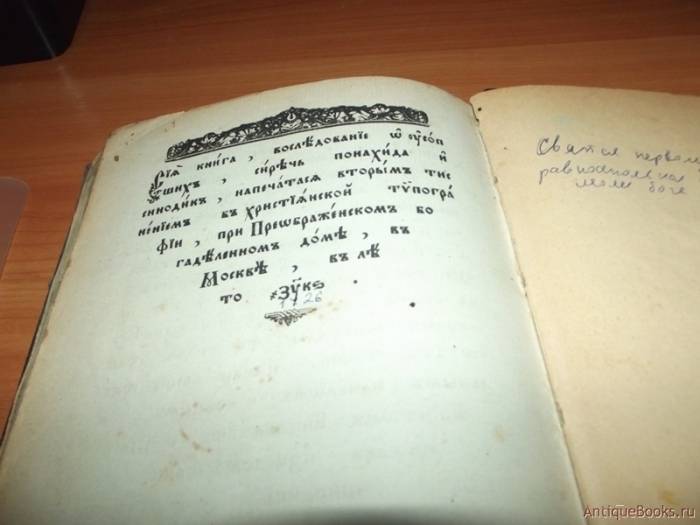 Сїѧ҆ кни́га, воⷭ҇лѣ́дованїе ѡ҆ ᲂу҆сѡ́п
шихъ, си́рѣчь понахи́да и҆
синнѡди́къ, напеча́тасѧ вторы́мъ тис
не́нїемъ въ христїѧ́нской тѷпогра́
фїи, при Преѡбраже́нскомъ бо
гадѣ́ленномъ до́мѣ, въ
Москвѣ̀, въ лѣ́
то ҂ЗУ҃КЅ
1926
Святая первому
равноапостольная
моли бога
AntiqueBooks.ru